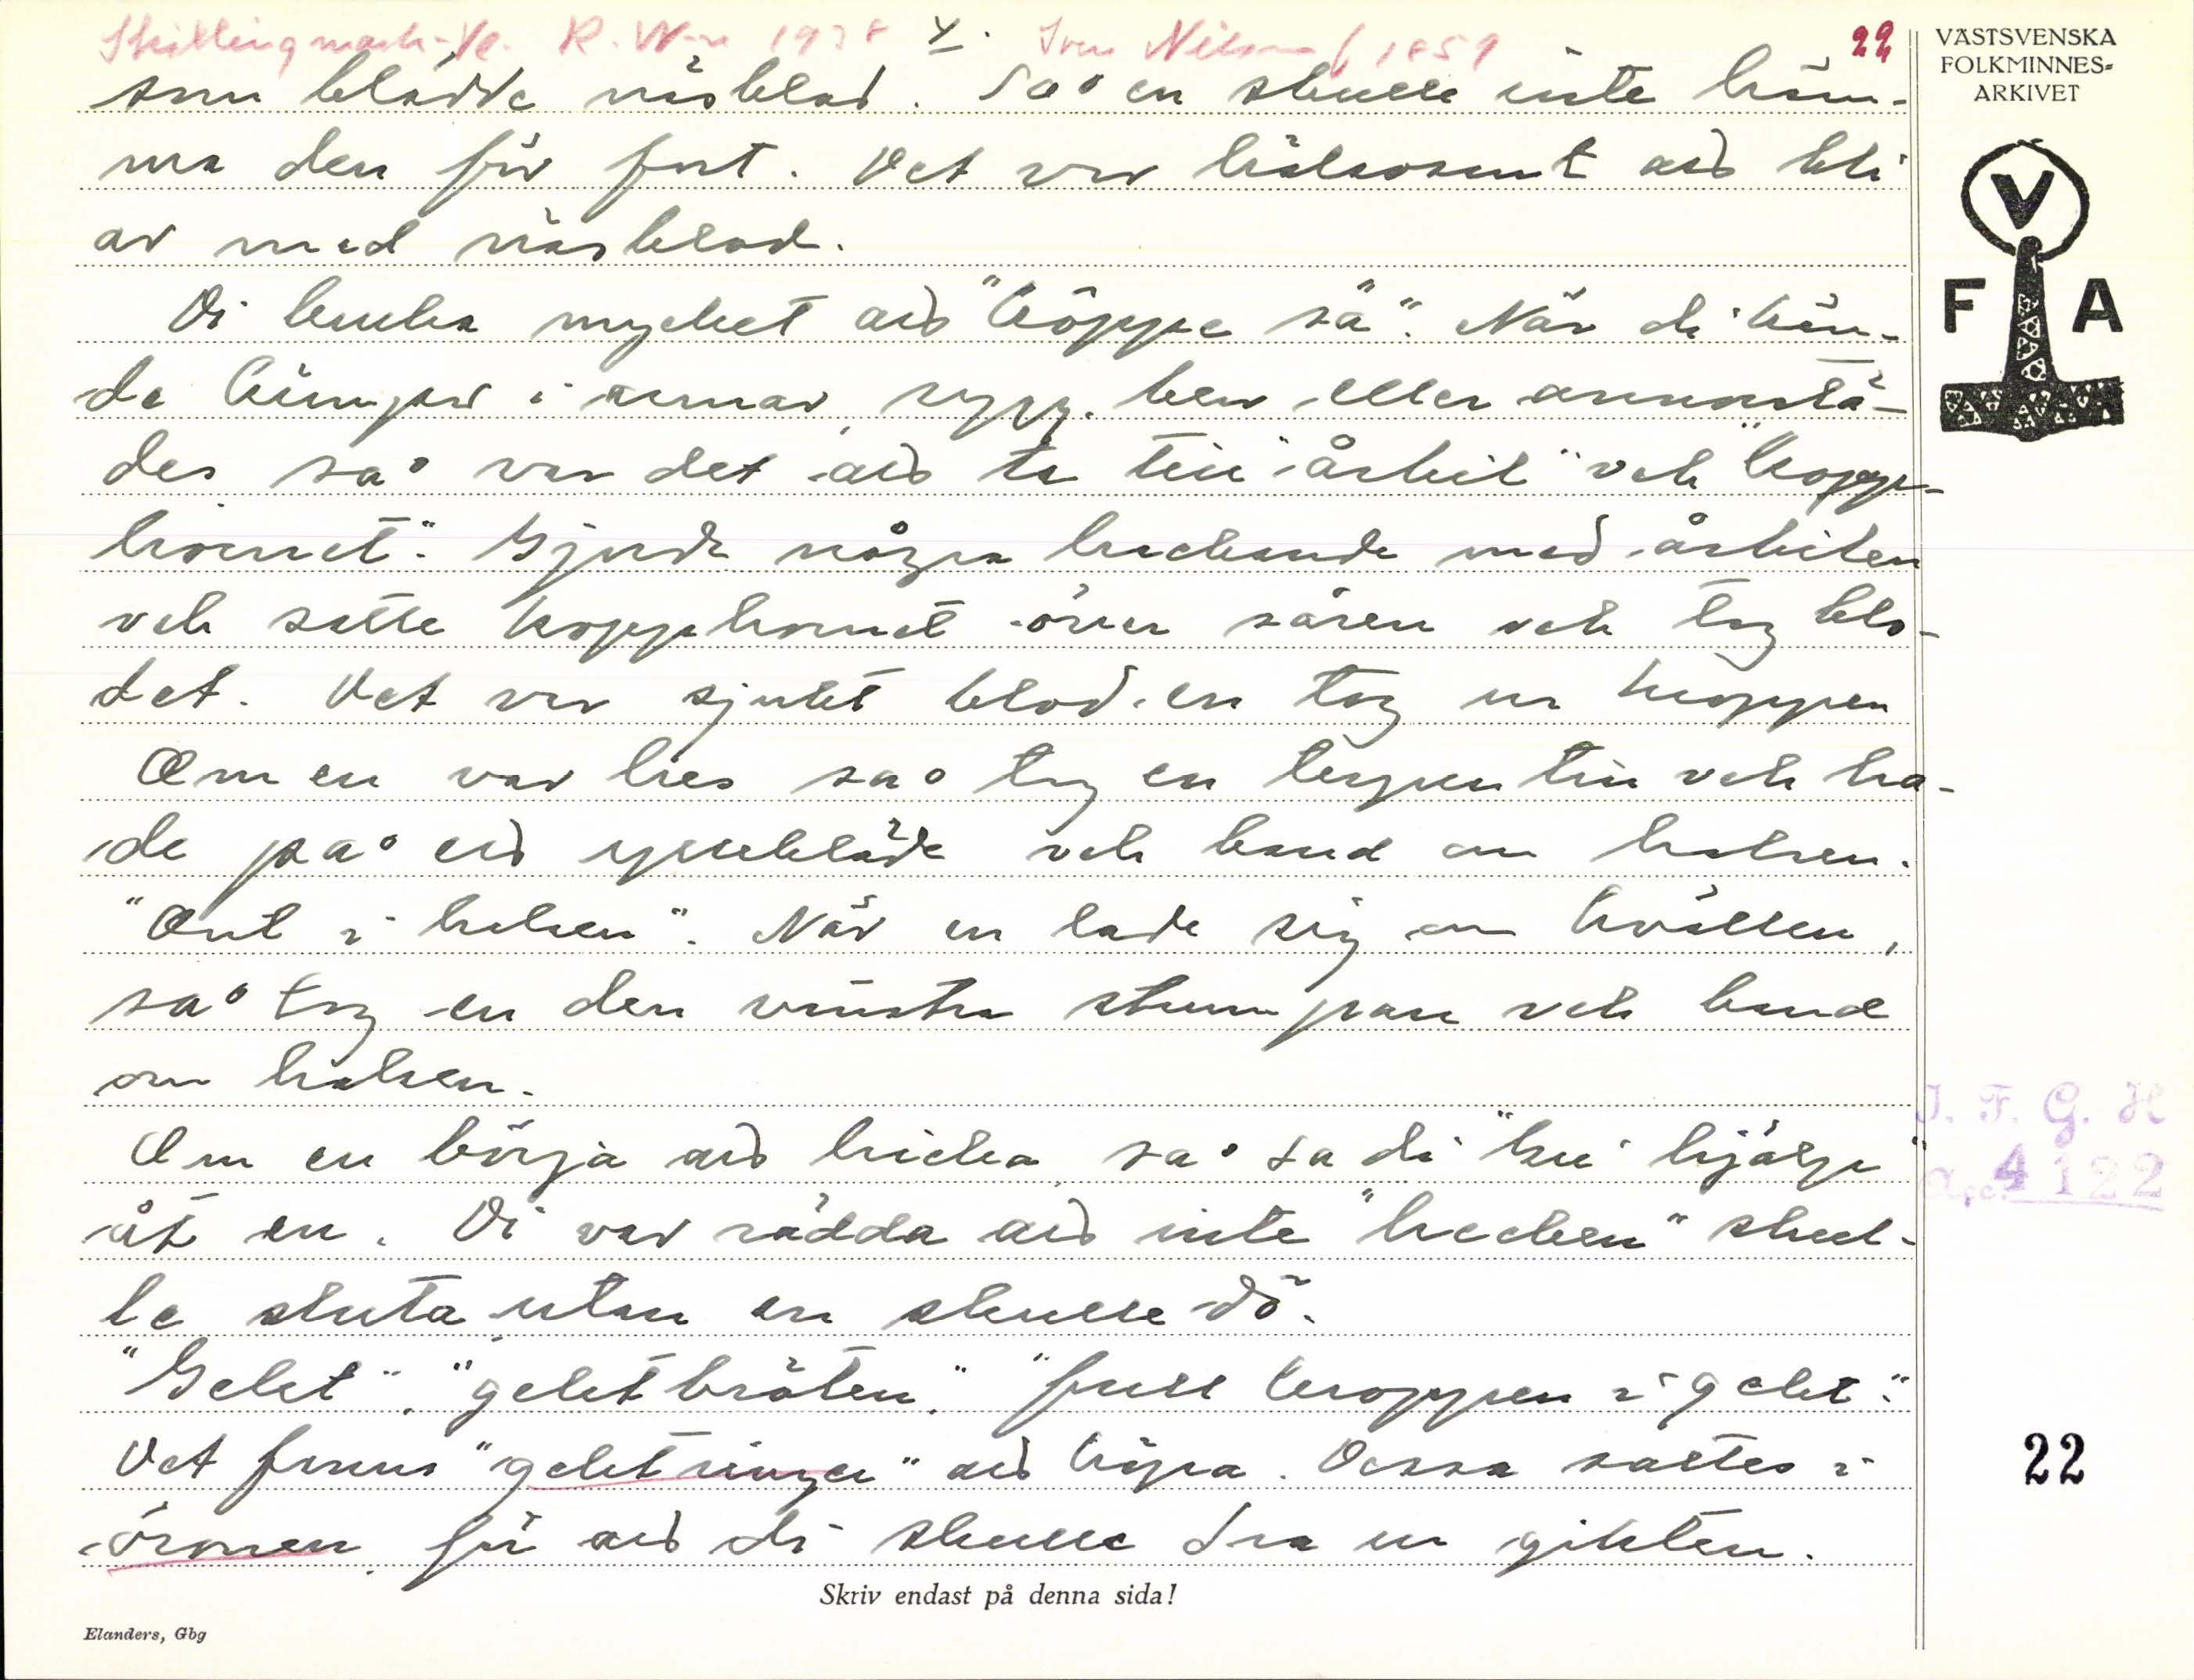 Skillingmark-Vl. R. W-n 1938 4. Sven Nilsson f. 1859 22
VÄSTSVENSKA
FOLKMINNES-
ARKIVET
V
F A
som blödde näsblod. Så en skulle inte häm-
ma den för fort. Det var hälsosamt ad bli
av med näsblod.
Di bruka mycket ad "köppe sä". När di kän-
de kämper i armar, rygg, ben eller annostä-
des så var det ad ta till "årbil" och "kopp-
hornet". Gjorde några hackande med årbilen
och satte kopphornet över såren och tog blo-
det. Det var sjukt blod en tog ur kroppen
Om en var hes så tog en terpentin och ha-
de på ed yllekläde och band om halsen.
"Ont i halsen". När en lade sig om kvällen,
så tog en den vänstra strumpan och band
om halsen.
Om en börja ad hicka så sa di "Gu hjälp"
åt en. Di var rädda ad inte "hecken" skul-
le sluta utan en skulle dö.
"Gekt", "gektbröten", "full kroppen i gekt".
Det fanns "gektringer" ad köpa. Dessa sattes i
öronen för ad di skulle dra ur gikten.
I. F. G. H
Acc. 4122
22
Skriv endast på denna sida!
Elanders, Gbg